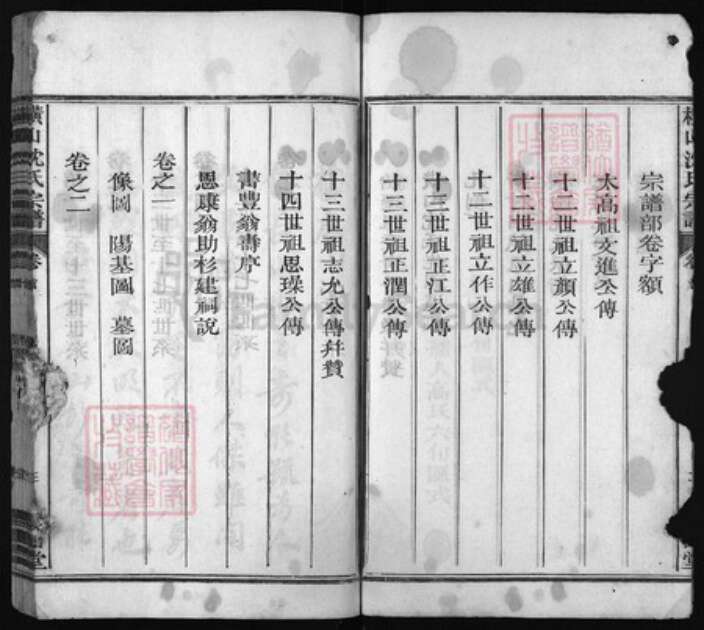 宗譜部卷字額
太高祖文進公傳
十二世祖立顏公傳
十二世祖立雄公傳
十二世祖立作公傳
十三世祖正江公傳
十三世祖正潤公傳
十三世祖志允公傳幷贊
十四世祖思璞公傳
書豐翁壽序
思璞翁助杉建祠說
卷之一
像圖 陽基圖 墓圖
卷之二
橫山沈氏宗譜